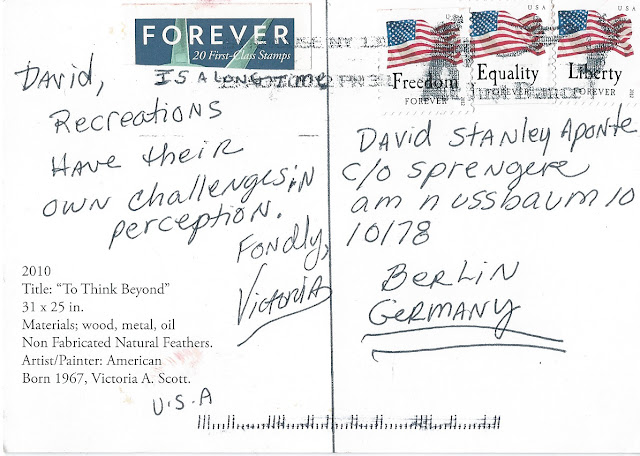 FOREVER
20 First-Class Stamps
IS A LONG TIME
David,
Recreations
Have their
own challenges in
perception.
Fondly,
Victoria
2010
Title: “To Think Beyond”
31 x 25 in.
Materials; wood, metal, oil
Non Fabricated Natural Feathers.
Artist/Painter: American
Born 1967, Victoria A. Scott.
U.S.A
USA
Freedom
FOREVER
USA
Equality
FOREVER
USA
Liberty
FOREVER
David Stanley Aponte
c/o sprengere
am nussbaum 10
10178
Berlin
Germany